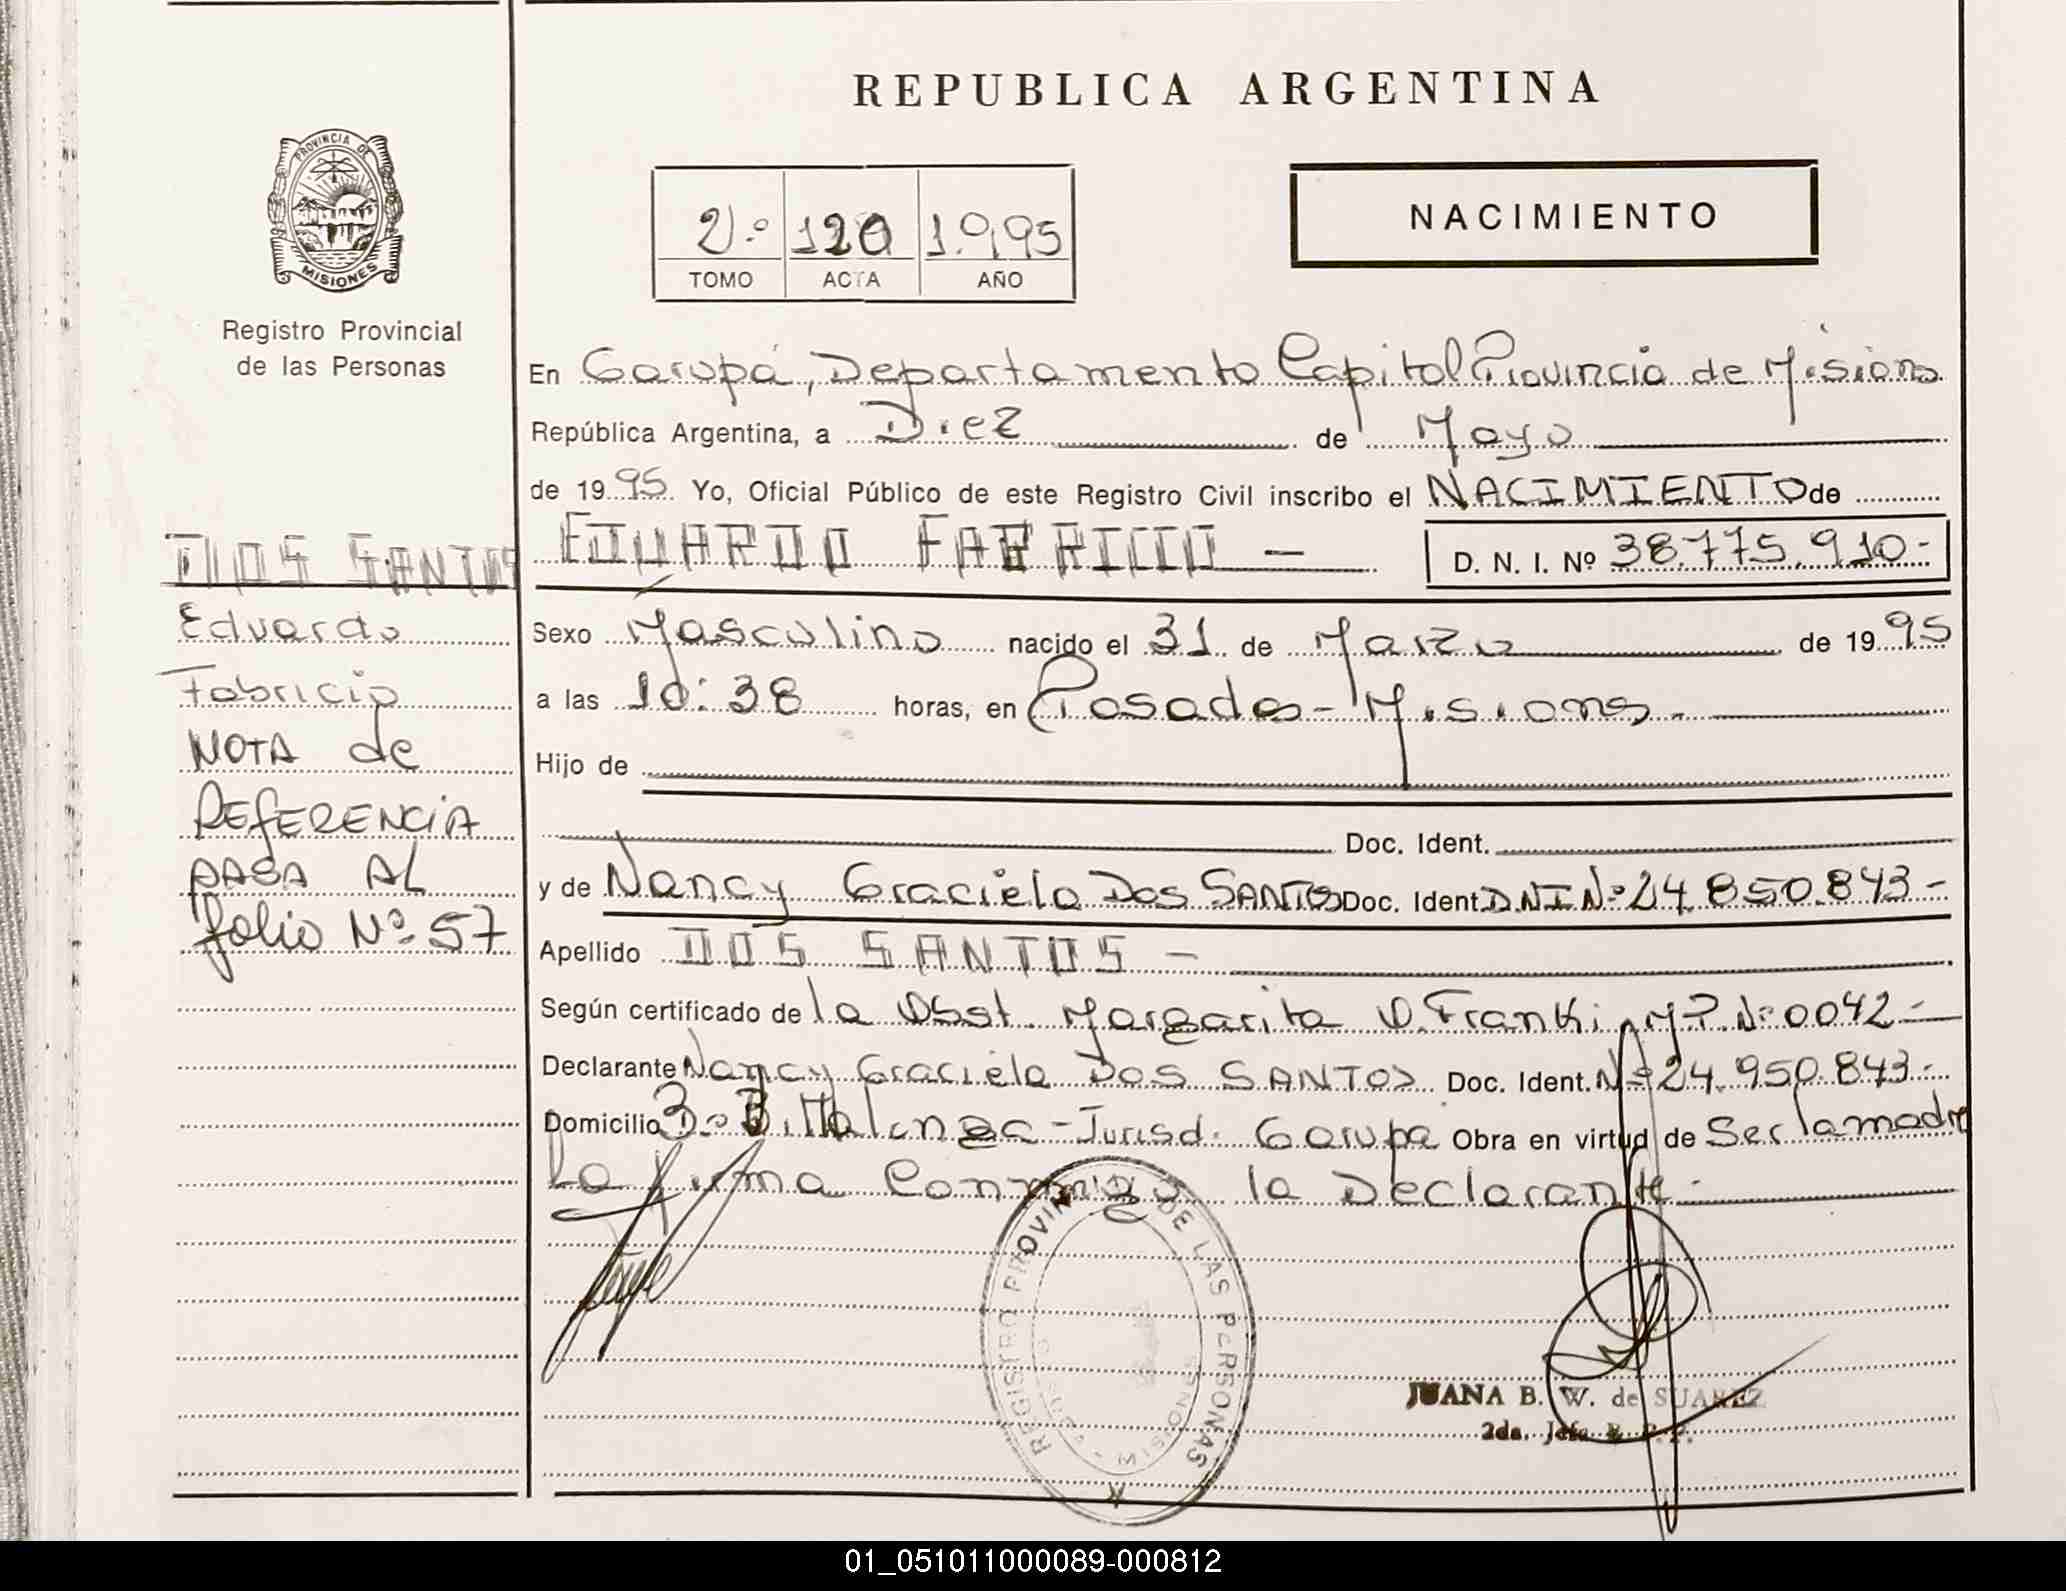 REPUBLICA ARGENTINA
PROVINCIA DE
MISIONES
Registro Provincial
de las Personas
2º 120 1.995
TOMO ACTA AÑO
NACIMIENTO
En Garupá, Departamento Capital Provincia de Misiones
República Argentina, a Diez de Mayo
de 1995 Yo, Oficial Público de este Registro Civil inscribo el NACIMIENTO de
EDUARDO FABRICIO — D. N. I. Nº 38.775.910-
Sexo Masculino nacido el 31 de Marzo de 1995
a las 10:38 horas, en Posadas - Misiones.-
Hijo de
Doc. Ident.
y de Nancy Graciela Dos SANTOS Doc. Ident. DNI Nº 24.850.843-
Apellido DOS SANTOS -
Según certificado de la Obst. Margarita O. Franki M.P. Nº 0042-
Declarante Nancy Graciela Dos SANTOS Doc. Ident. Nº 24.950.843-
Domicilio Bº - Jurisd. Garupá Obra en virtud de Ser la madre
La firma Conmigo la Declarante.-
DOS SANTOS
Eduardo
Fabricio
NOTA de
REFERENCIA
PASA AL
folio Nº 57
REGISTRO PROVINCIAL DE LAS PERSONAS
MISIONES
JUANA B. W. de SUAREZ
2da. Jefa R. P. P.
01_051011000089-000812